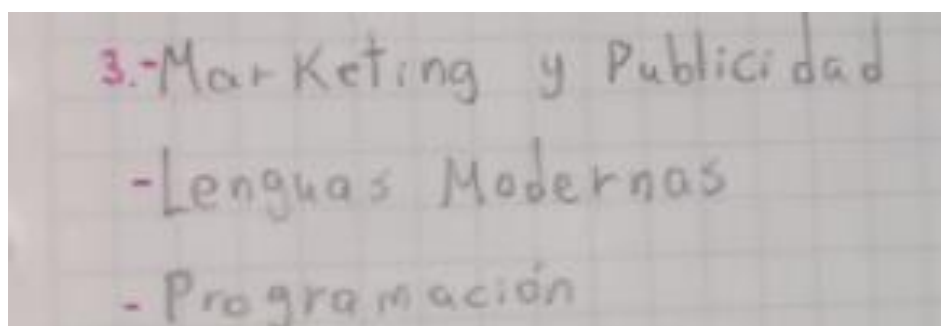 3.-Marketing y Publicidad
-Lenguas Modernas
-Programación